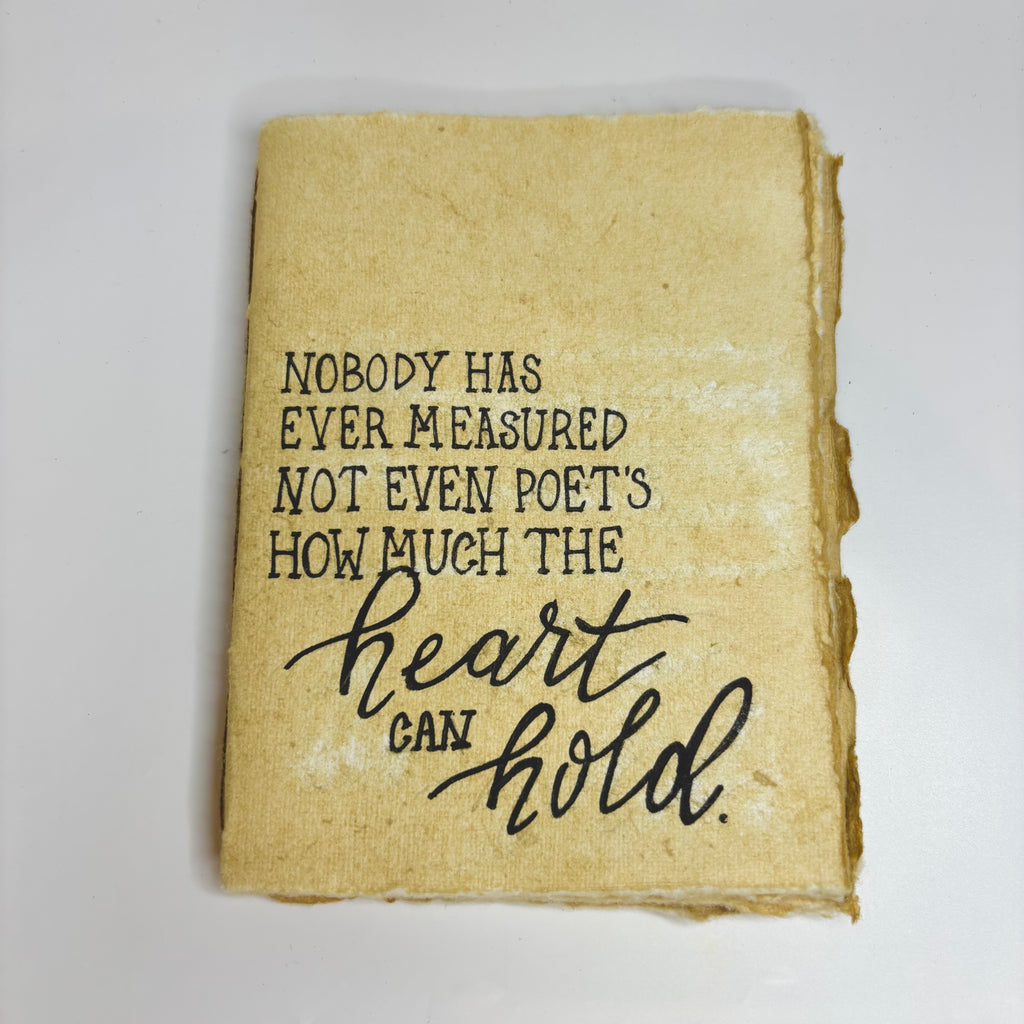 NOBODY HAS
EVER MEASURED
NOT EVEN POET'S
HOW MUCH THE
heart
CAN hold.